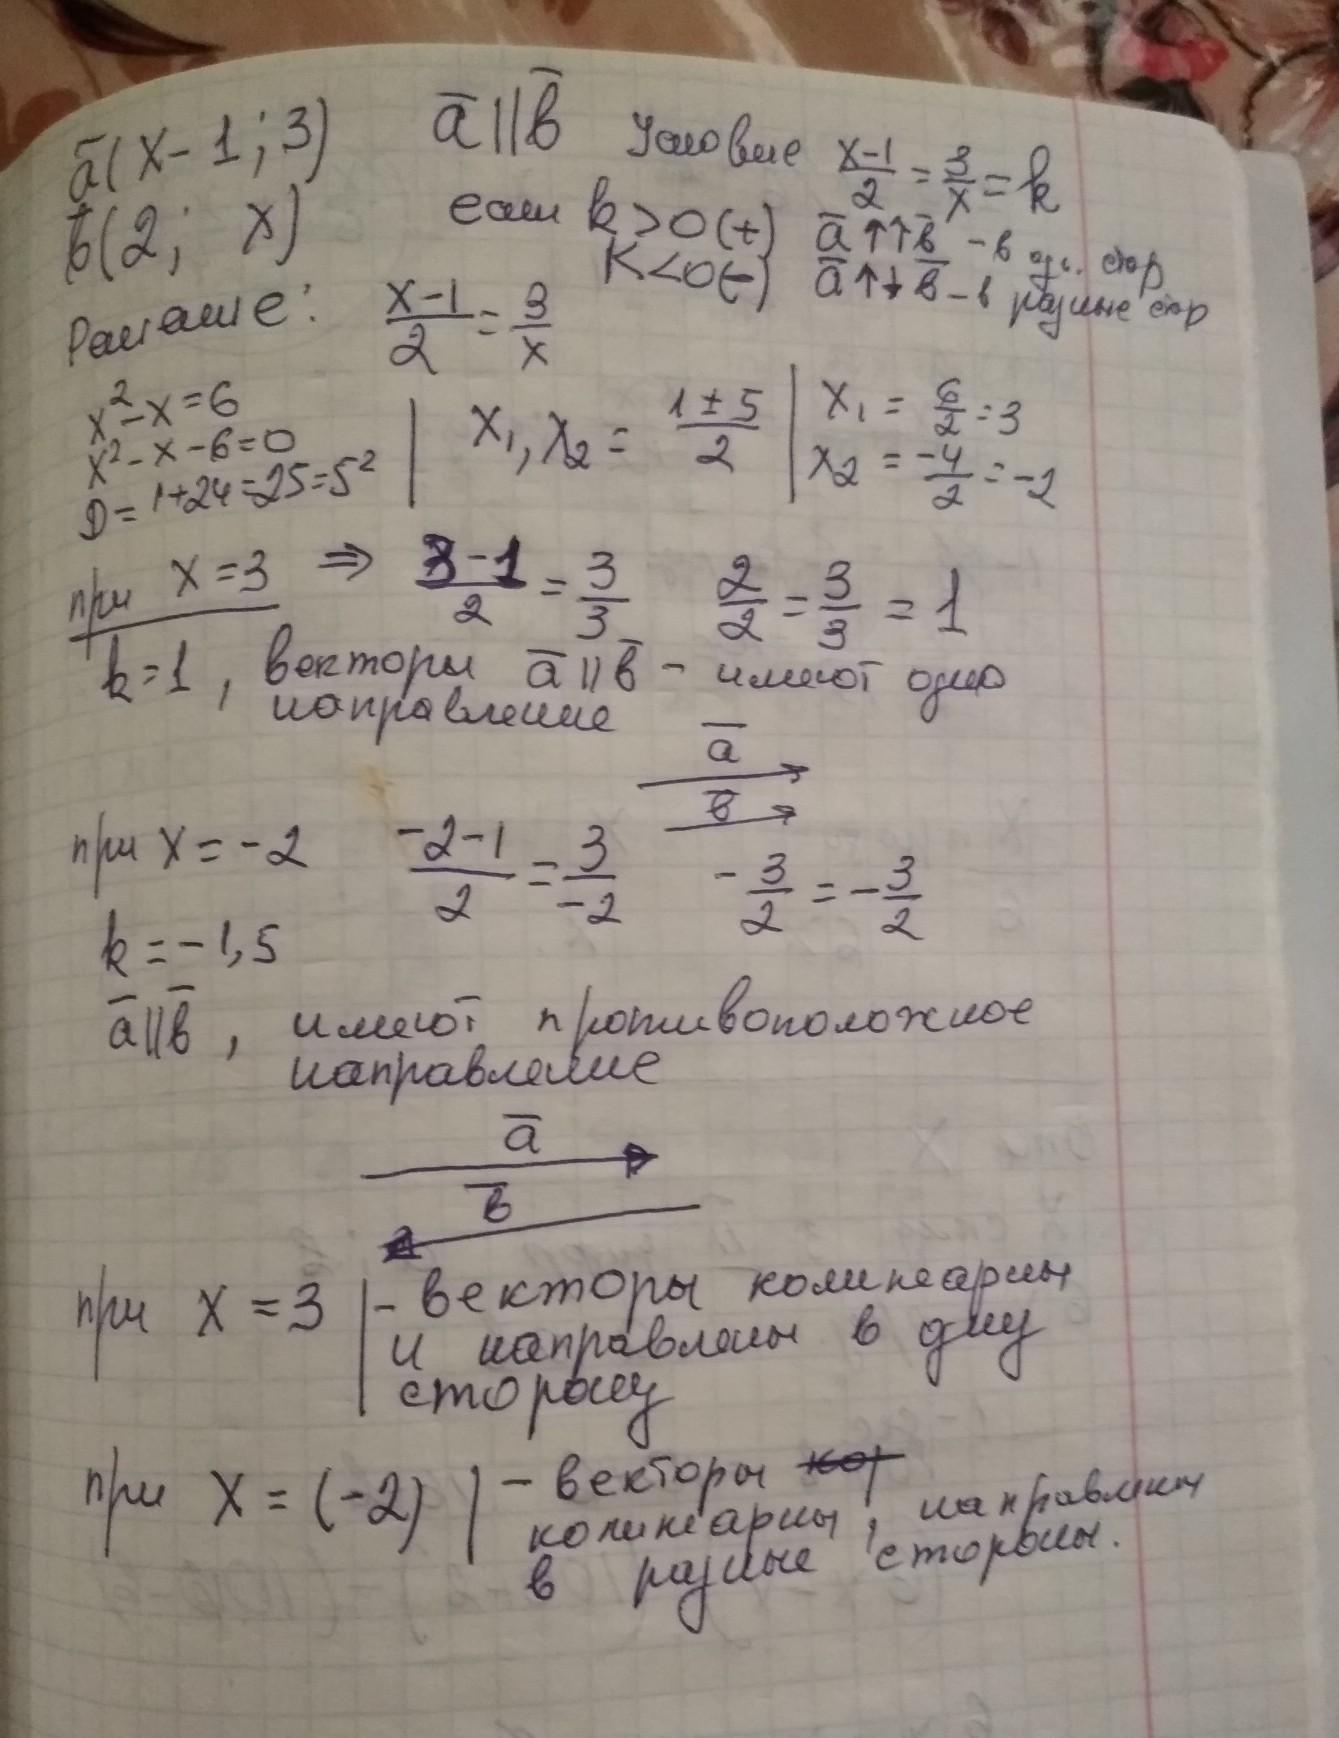 a̅(x-1; 3) a̅ || b̅ Условие (x-1)/2 = 3/x = k
b̅(2; x) если k>0(+) a̅↑↑b̅ - в одн. стор
k<0(-) a̅↑↓b̅ - в разные стор
Решение: (x-1)/2 = 3/x
x²-x=6
x²-x-6=0
D=1+24=25=5²
x₁,x₂ = (1±5)/2
x₁ = 6/2 = 3
x₂ = -4/2 = -2
при x=3 ⇒ (3-1)/2 = 3/3 2/2 = 3/3 = 1
k=1, векторы a̅ || b̅ - имеют одно
направление
a̅
b̅
при x = -2 (-2-1)/2 = 3/-2 -3/2 = -3/2
k = -1,5
a̅||b̅, имеют противоположное
направление
a̅
b̅
при x = 3 | - векторы колинеарны
и направлены в одну
сторону
при x = (-2) | - векторы
колинеарны, направлены
в разные стороны.